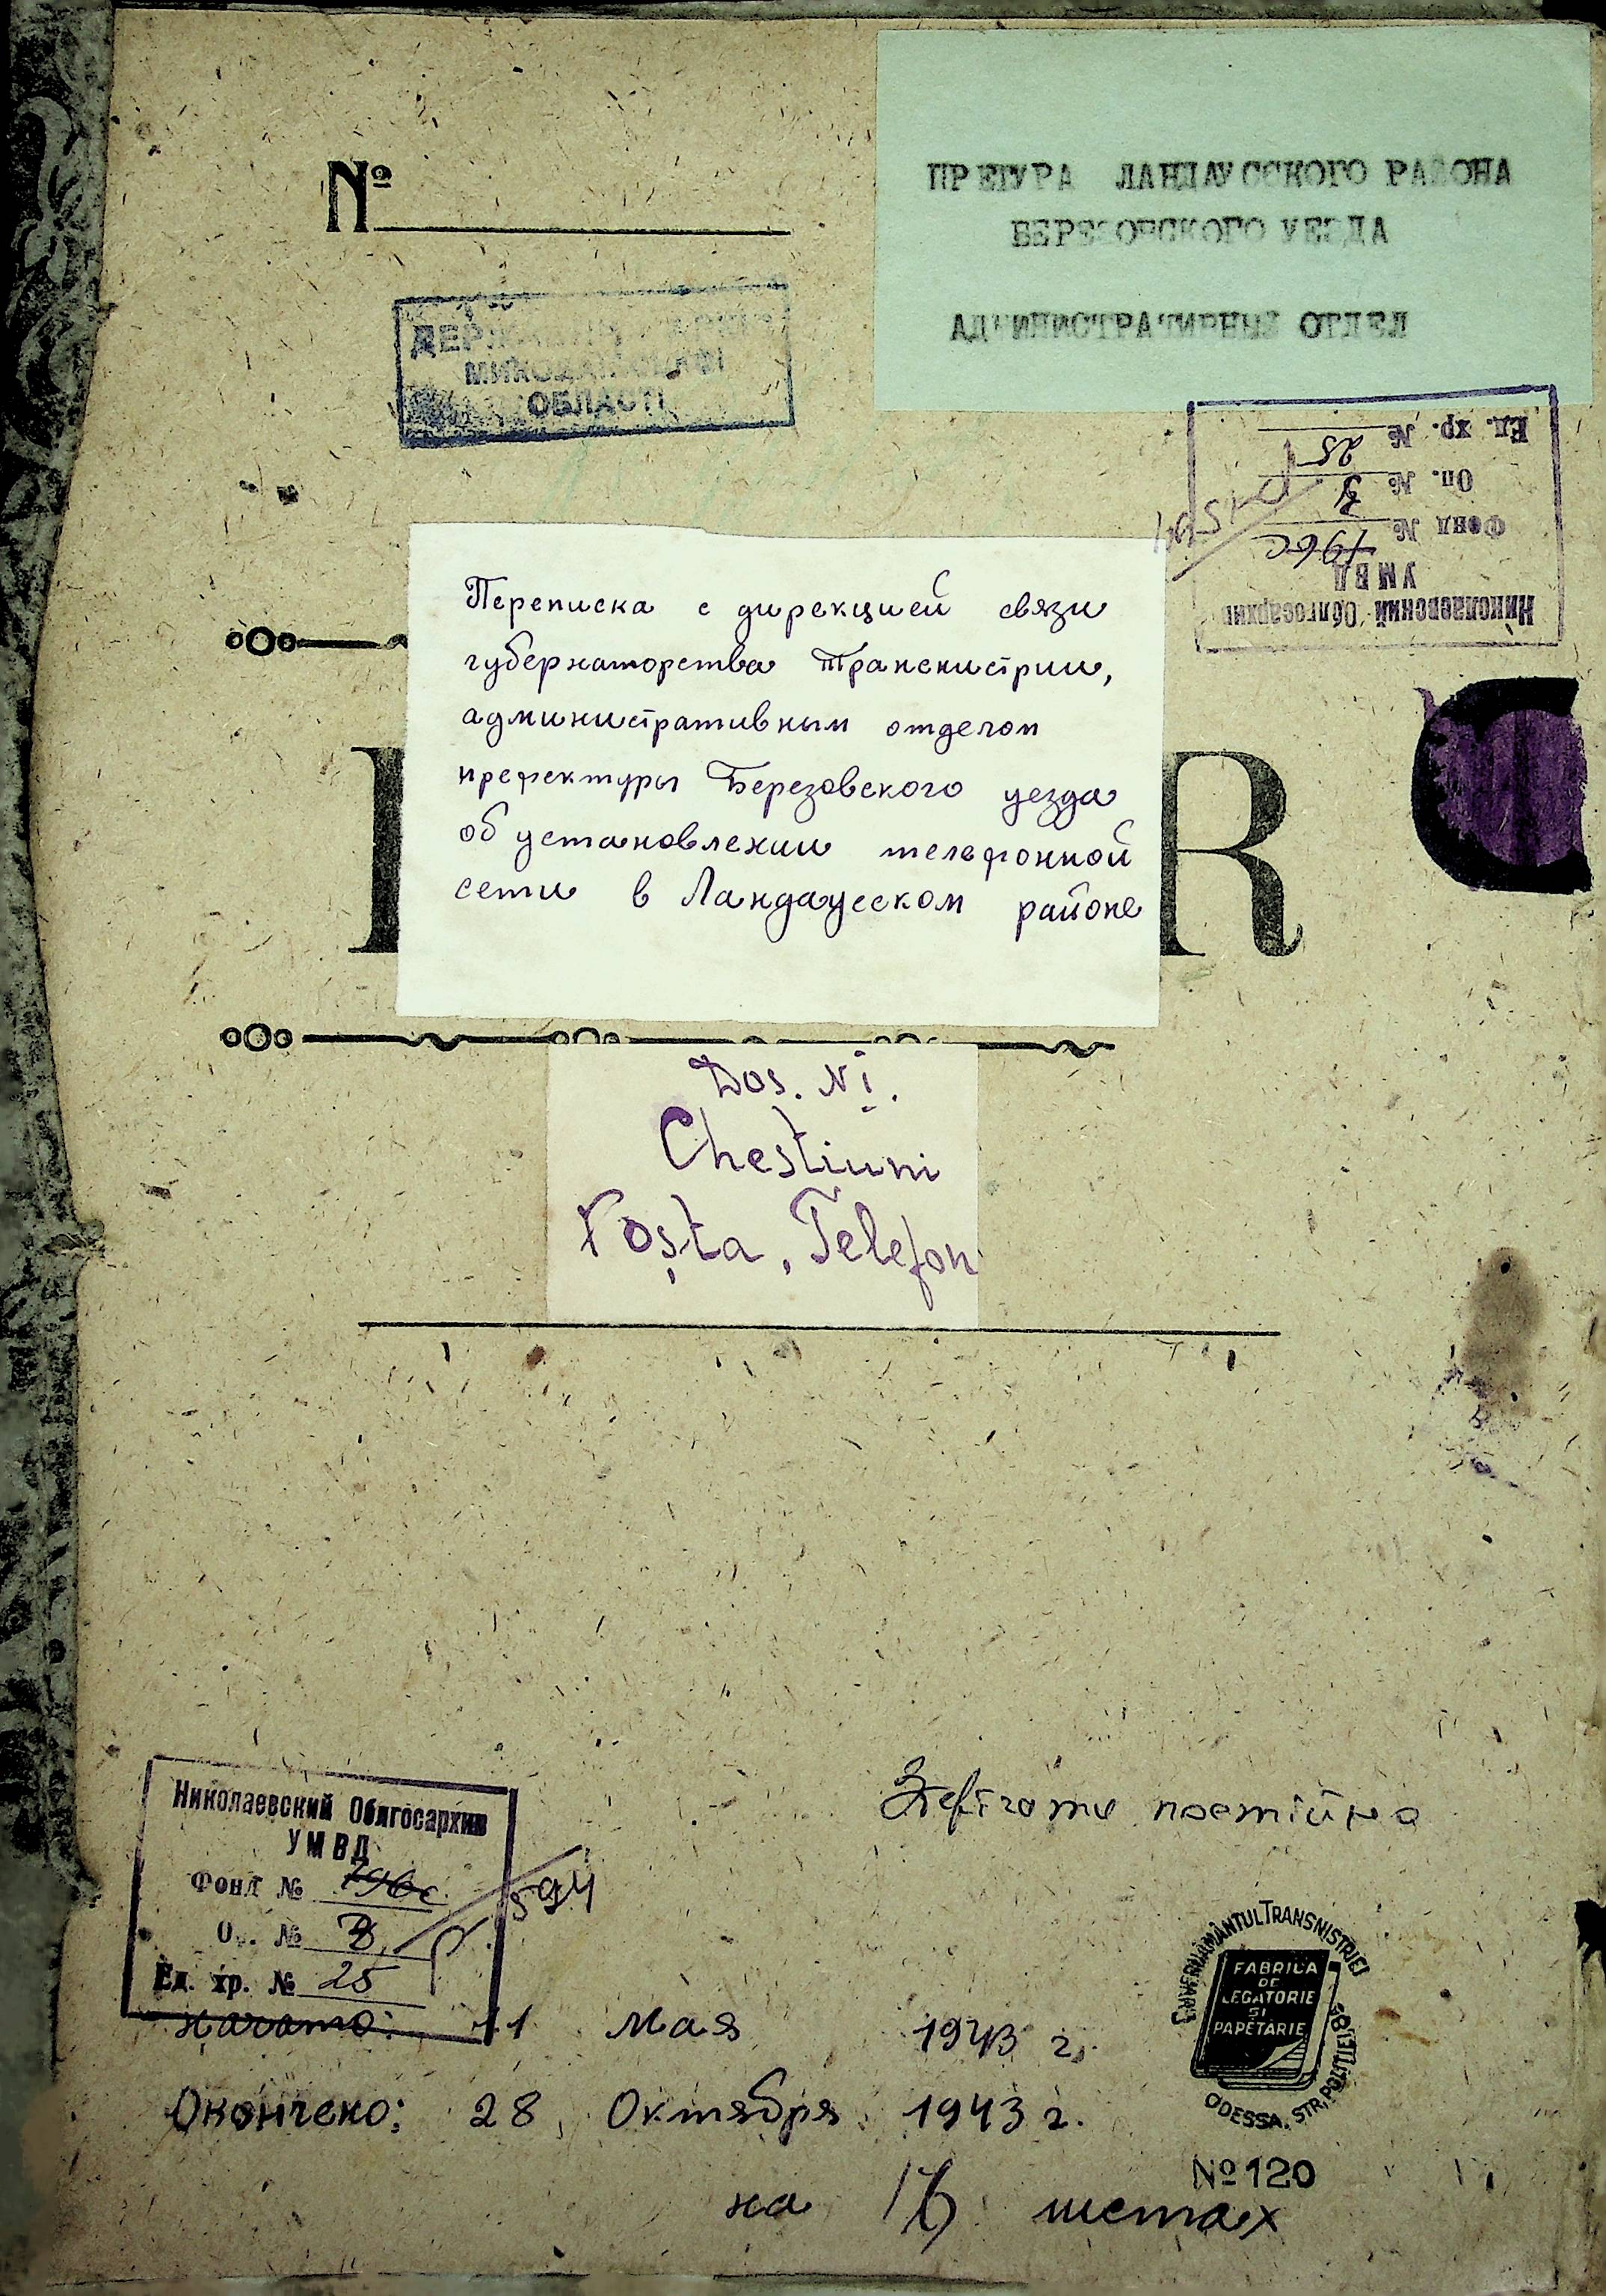 №
ПРЕТУРА ЛАНДАУССКОГО РАЙОНА
БЕРЕЗОВСКОГО УЕЗДА
АДМИНИСТРАТИВНЫЙ ОТДЕЛ
ДЕРЖАВНИЙ АРХІВ
МИКОЛАЇВСЬКОЇ
ОБЛАСТІ
Николаевский Облгосархив
УМВД
Фонд № 196с
Оп. № 3
Ед. хр. № 25
Переписка с дирекцией связи
губернаторства Транснистрии,
административным отделом
префектуры Березовского уезда
об установлении телефонной
сети в Ландаусском районе
R
Dos. N i.
Chestiuni
Poșta, Telefon
Зберігати постійно
Николаевский Облгосархив
УМВД
Фонд № 196с
Оп. № 3
594
Ед. хр. № 25
Начато: 11 мая 1943 г.
Окончено: 28 Октября 1943 г.
на 16 листах
GUVERNĂMÂNTUL TRANSNISTRIEI
FABRICA
DE
LEGATORIE
ȘI
PAPETĂRIE
ODESSA, STR. POLIȚIEI 38
№ 120